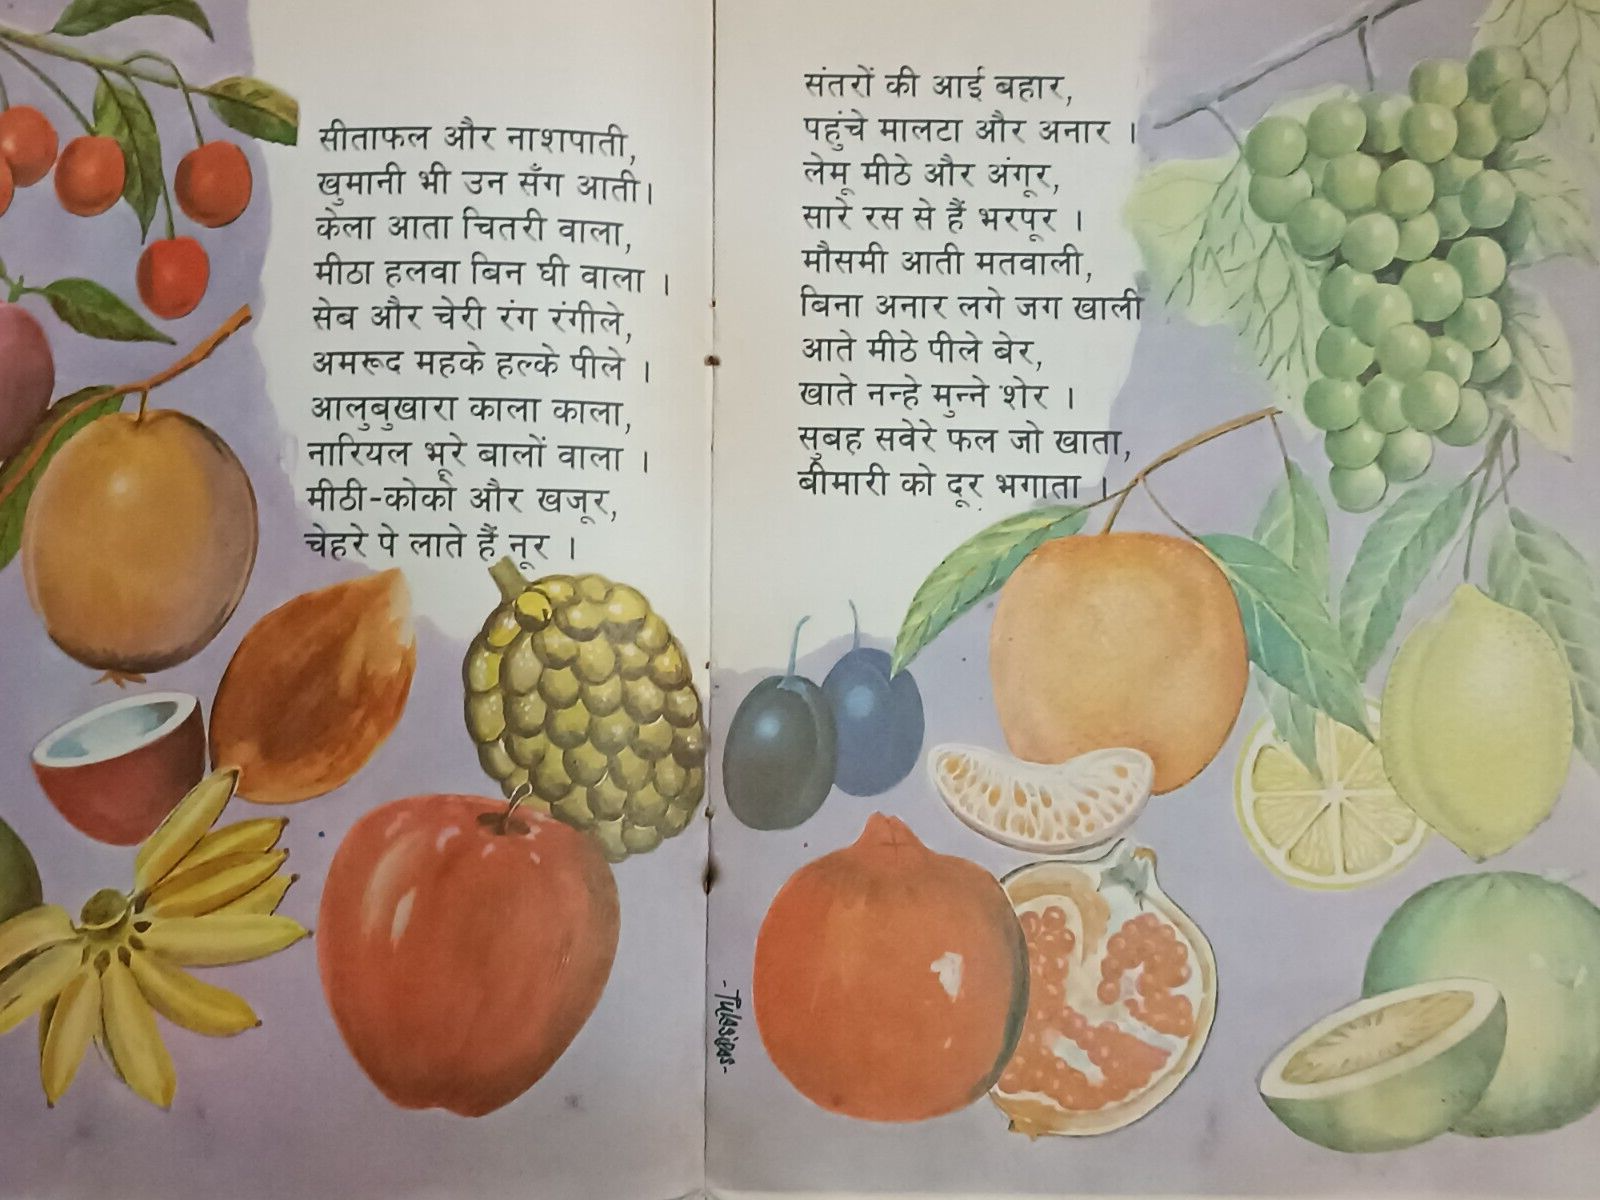 सीताफल और नाशपाती,
खुमानी भी उन सँग आती।
केला आता चितरी वाला,
मीठा हलवा बिन घी वाला ।
सेब और चेरी रंग रंगीले,
अमरूद महके हल्के पीले ।
आलुबुखारा काला काला,
नारियल भूरे बालों वाला ।
मीठी-कोको और खजूर,
चेहरे पे लाते हैं नूर ।
संतरों की आई बहार,
पहुंचे मालटा और अनार ।
लेमू मीठे और अंगूर,
सारे रस से हैं भरपूर ।
मौसमी आती मतवाली,
बिना अनार लगे जग खाली
आते मीठे पीले बेर,
खाते नन्हे मुन्ने शेर ।
सुबह सवेरे फल जो खाता,
बीमारी को दूर भगाता ।
-Tulsidas-